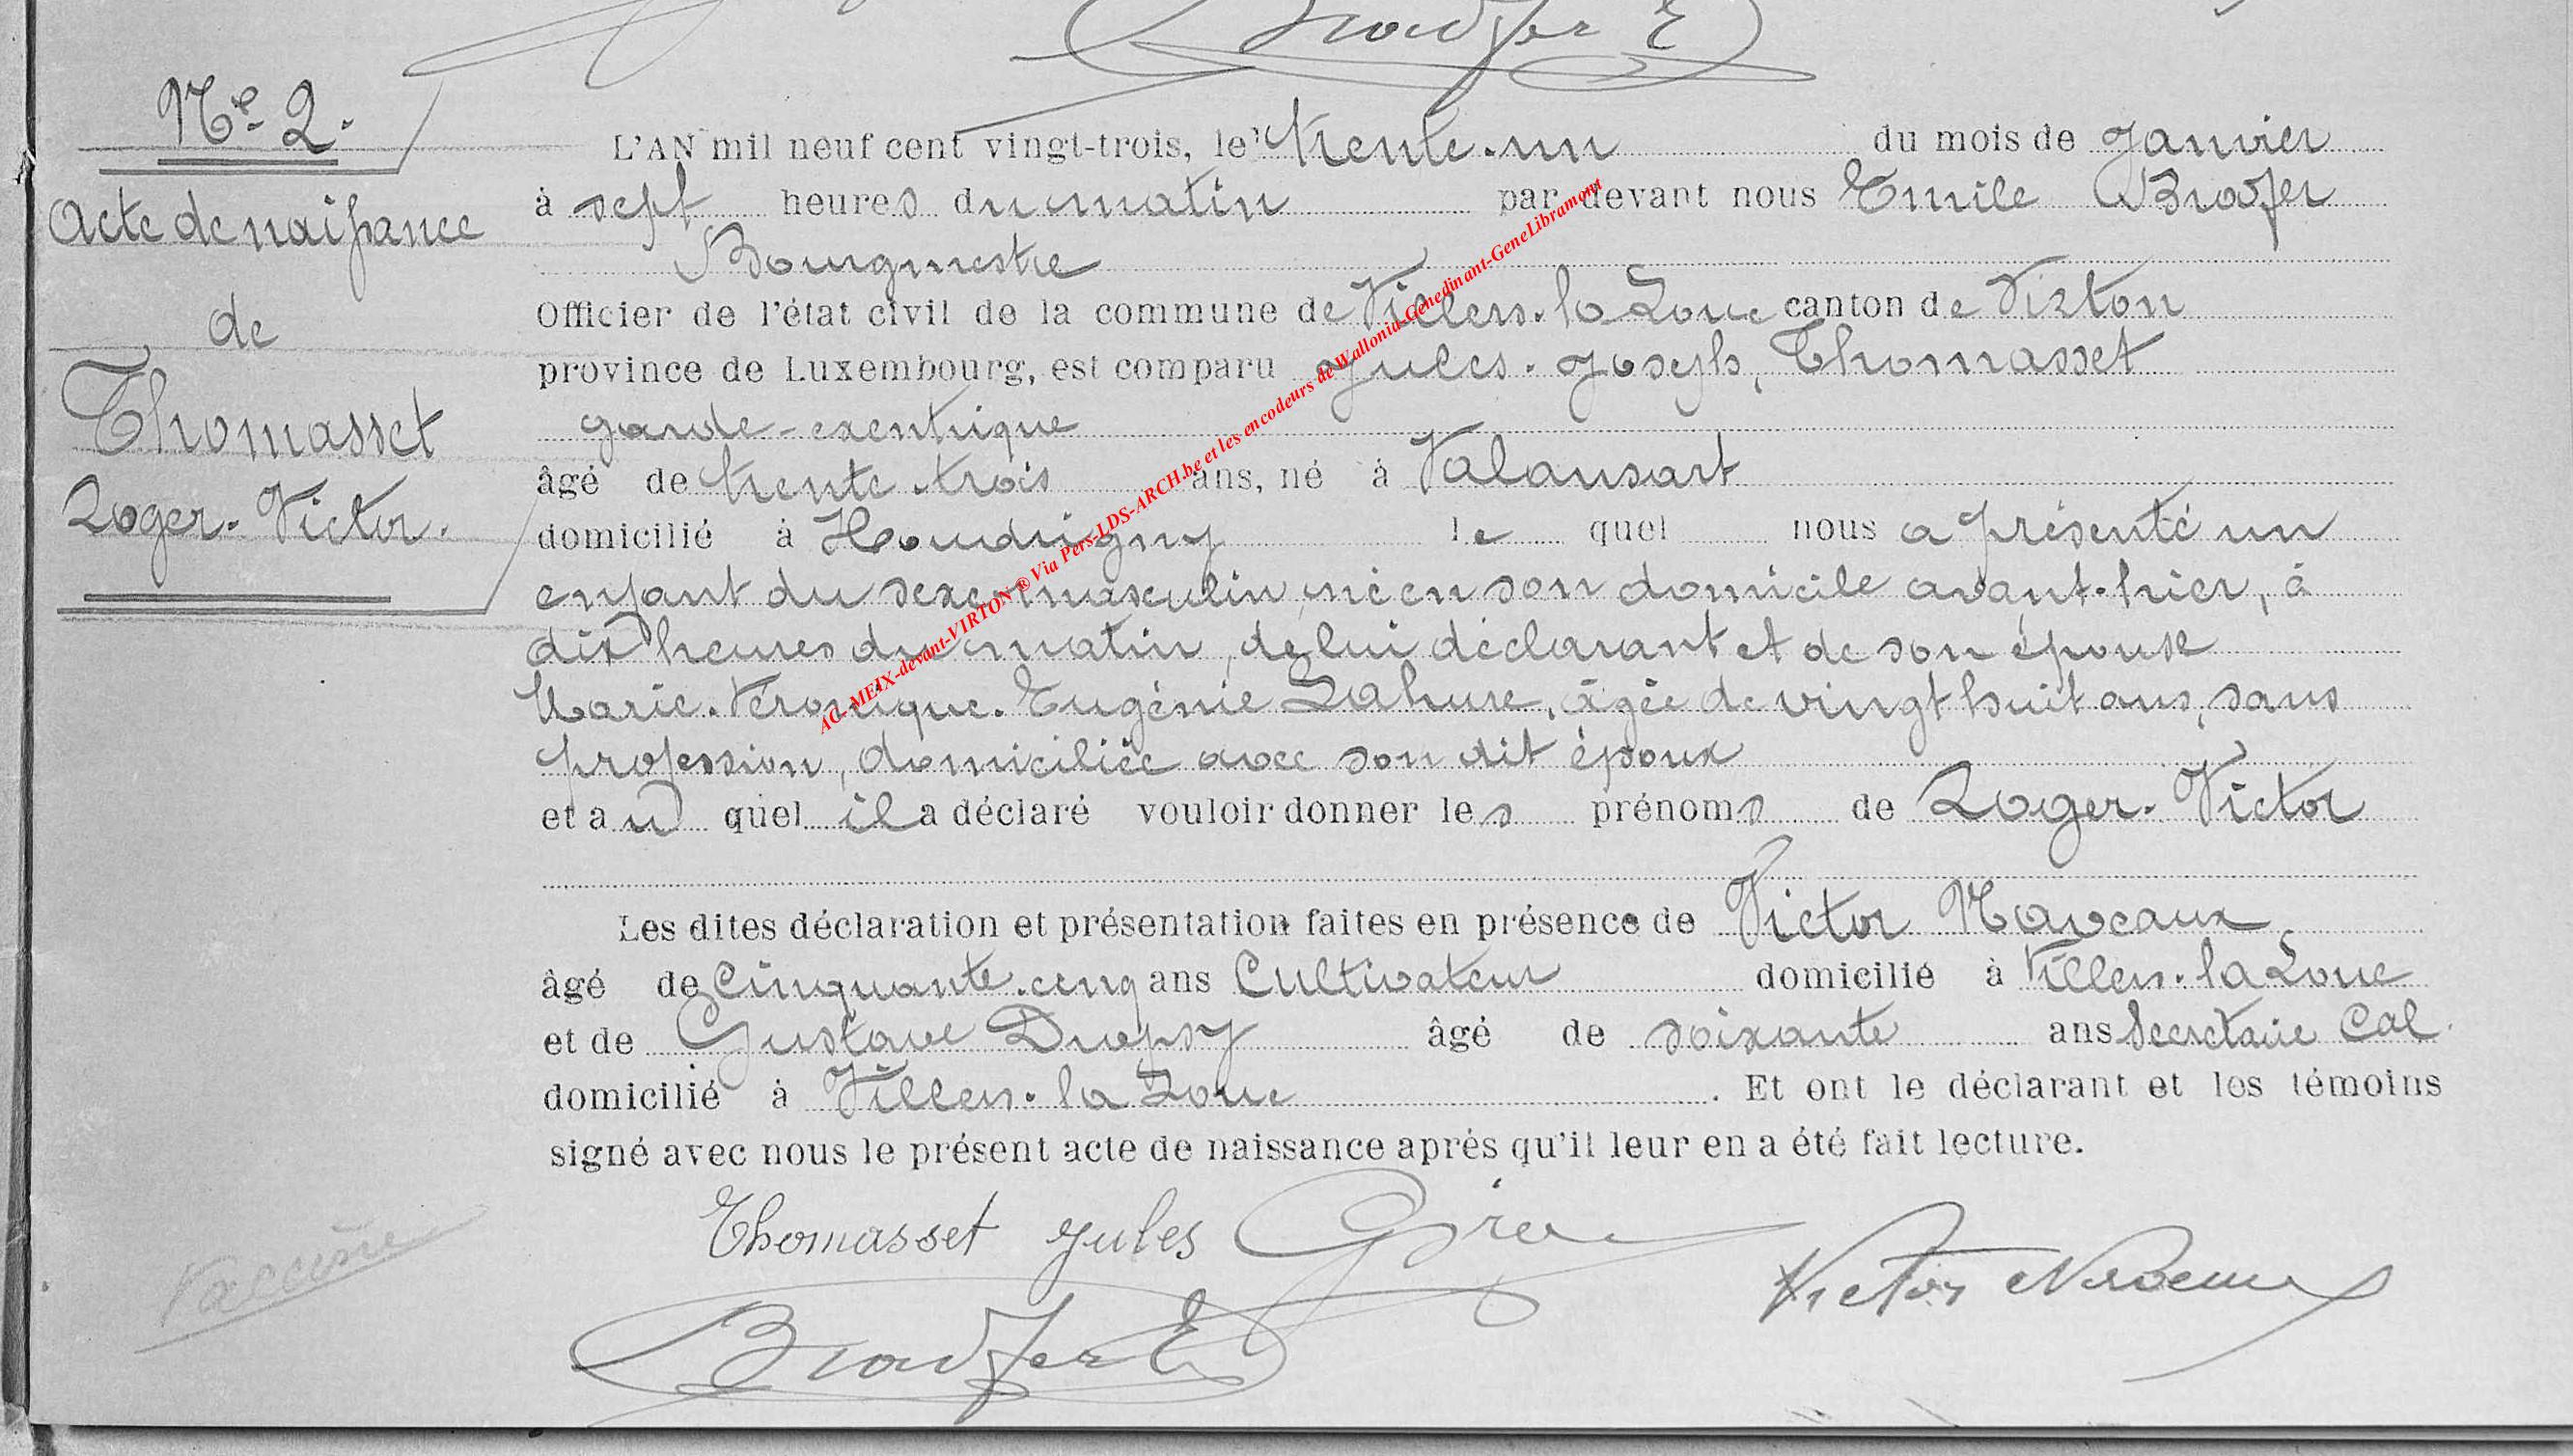 N° 2.
Acte de naissance
de
Thomasset
Roger-Victor.
L'AN mil neuf cent vingt-trois, le trente-un du mois de Janvier
à sept heures du matin par devant nous Emile
Bourgmestre
Officier de l'état civil de la commune de Villers-la Loue canton de Virton
province de Luxembourg, est comparu Jules-Joseph, Thomasset
garde-exentrique
âgé de trente-trois ans, né à Valansart
domicilié à Houdrigny le quel nous a présenté un
enfant du sexe masculin, né en son domicile avant-hier, à
dix heures du matin, de lui déclarant et de son épouse
Marie-Véronique-Eugénie Lahure, âgée de vingt huit ans, sans
profession, domiciliée avec son dit époux
et au quel il a déclaré vouloir donner les prénoms de Roger-Victor
Les dites déclaration et présentation faites en présence de Victor Naveaux
âgé de Cinquante-cinq ans Cultivateur domicilié à Villers-la Loue
et de Gustave âgé de soixante ans Secrétaire Cal.
domicilié à Villers-la Loue . Et ont le déclarant et les témoins
signé avec nous le présent acte de naissance après qu'il leur en a été fait lecture.
Thomasset Jules
Victor
AC-MEIX-devant-VIRTON ® Via Pers-LDS-ARCH.be et les encodeurs de Wallonia-Genedinant-GeneLibramont